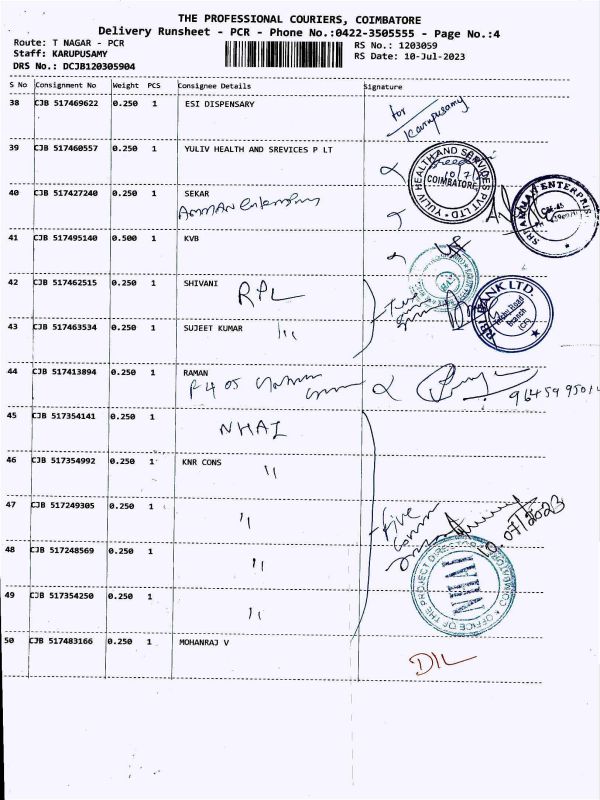 THE PROFESSIONAL COURIERS, COIMBATORE
Delivery Runsheet - PCR - Phone No.:0422-3505555 - Page No.:4
Route: T NAGAR - PCR RS No.: 1203059
Staff: KARUPUSAMY RS Date: 10-Jul-2023
DRS No.: DCJB120305904
S No Consignment No Weight PCS Consignee Details Signature
38 CJB 517469622 0.250 1 ESI DISPENSARY
for
Karupusamy
39 CJB 517460557 0.250 1 YULIV HEALTH AND SREVICES P LT
YULIV HEALTH AND SERVICES PVT LTD
COIMBATORE
40 CJB 517427240 0.250 1 SEKAR
AMMAN
SRI AMMAN ENTERPRIS
41 CJB 517495140 0.500 1 KVB
42 CJB 517462515 0.250 1 SHIVANI
RPL
RBL BANK LTD.
Branch
43 CJB 517463534 0.250 1 SUJEET KUMAR
44 CJB 517413894 0.250 1 RAMAN
45 CJB 517354141 0.250 1
NHAI
46 CJB 517354992 0.250 1 KNR CONS
47 CJB 517249305 0.250 1
Five
07/2023
48 CJB 517248569 0.250 1
OFFICE OF THE PROJECT DIRECTOR
NHAI
COIMBATORE
49 CJB 517354250 0.250 1
50 CJB 517483166 0.250 1 MOHANRAJ V
D/L